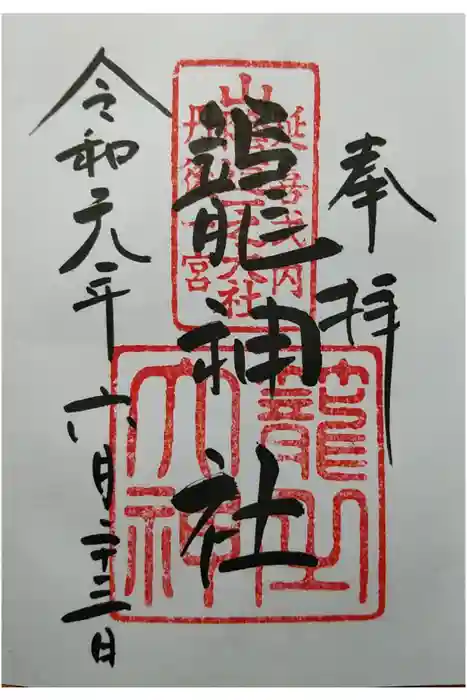 奉拝
延喜式内
丹後一宮
籠神社
籠之大神
令和元年六月二十三日